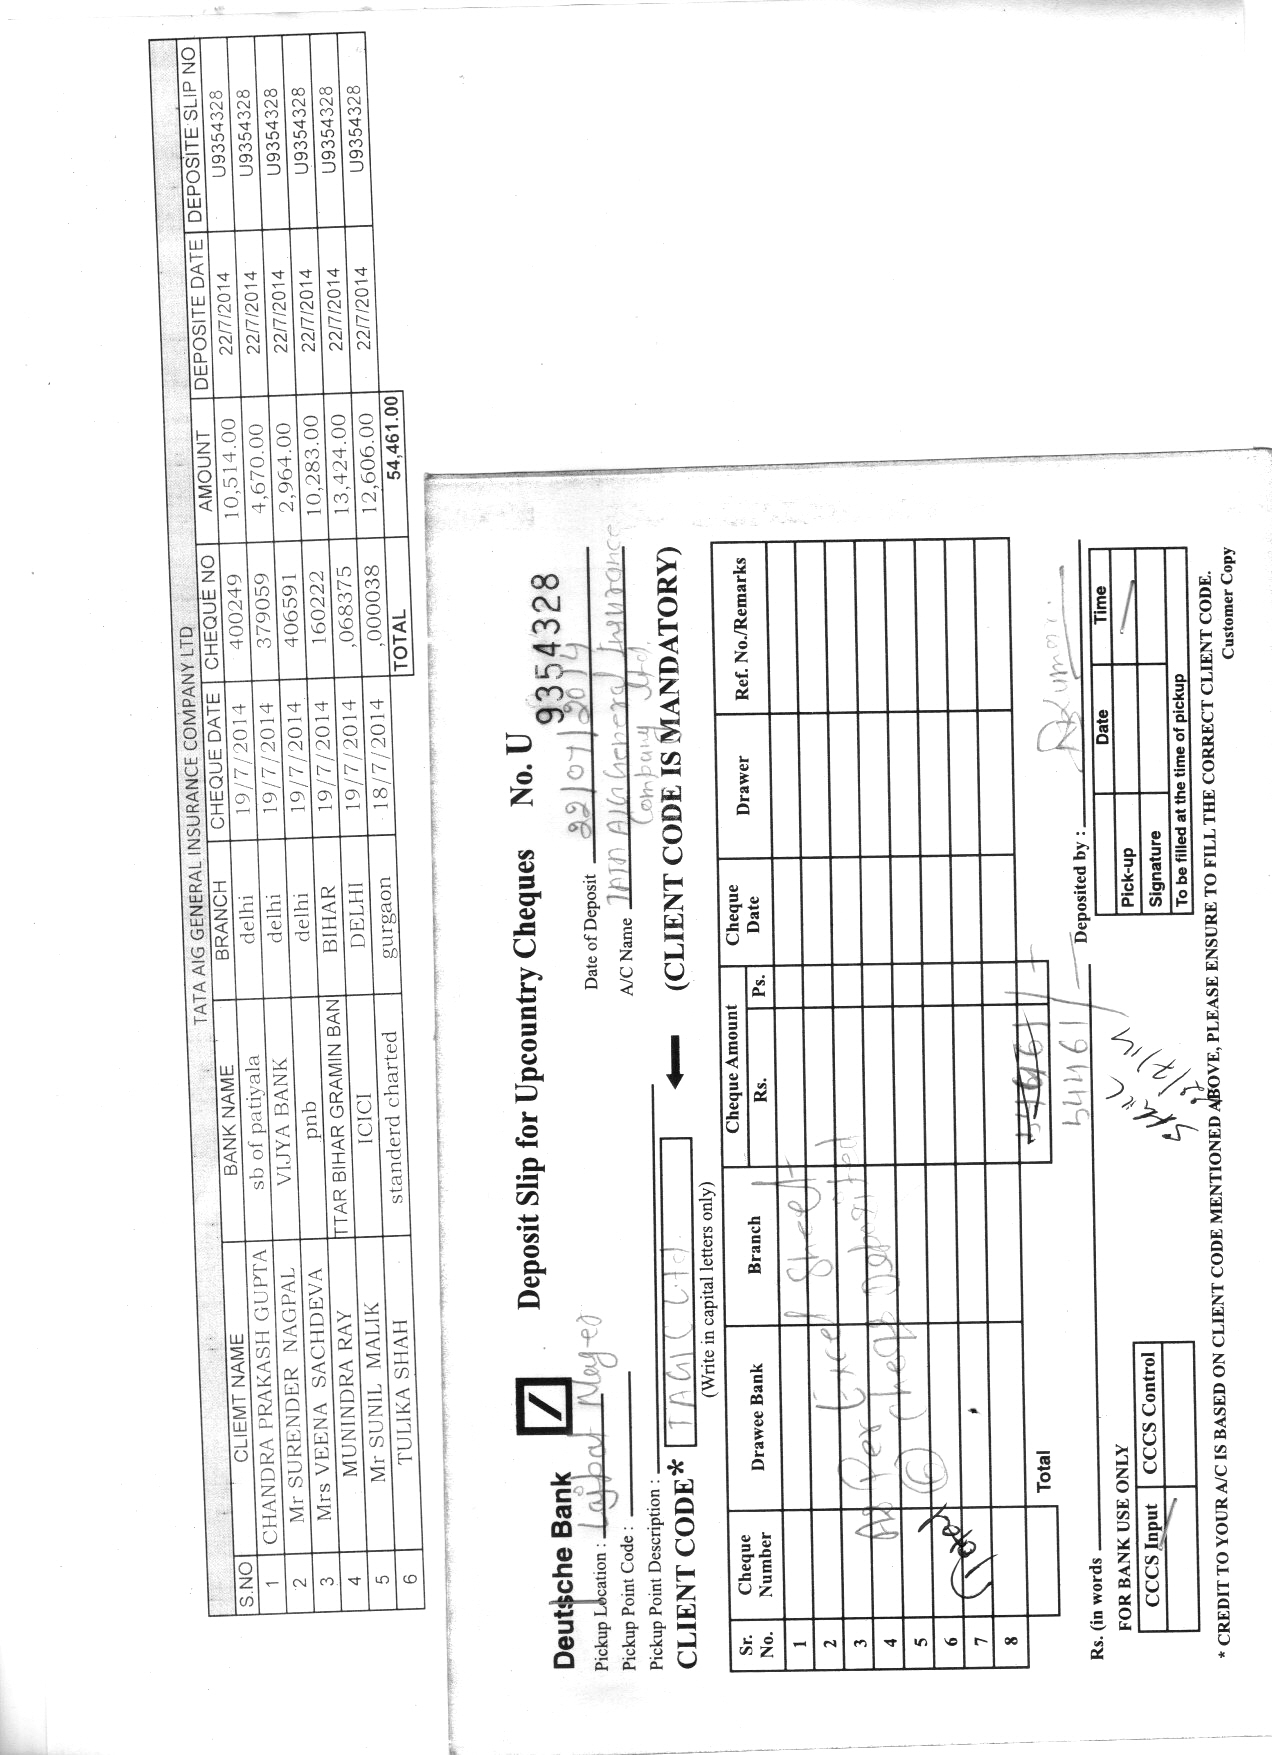 TATA AIG GENERAL INSURANCE COMPANY LTD
S.NO CLIEMT NAME BANK NAME BRANCH CHEQUE DATE CHEQUE NO AMOUNT DEPOSITE DATE DEPOSITE SLIP NO
1 CHANDRA PRAKASH GUPTA sb of patiyala delhi 19/7/2014 400249 10,514.00 22/7/2014 U9354328
2 Mr SURENDER NAGPAL VIJYA BANK delhi 19/7/2014 379059 4,670.00 22/7/2014 U9354328
3 Mrs VEENA SACHDEVA pnb delhi 19/7/2014 406591 2,964.00 22/7/2014 U9354328
4 MUNINDRA RAY TTAR BIHAR GRAMIN BAN BIHAR 19/7/2014 160222 10,283.00 22/7/2014 U9354328
5 Mr SUNIL MALIK ICICI DELHI 19/7/2014 ,068375 13,424.00 22/7/2014 U9354328
6 TULIKA SHAH standerd charted gurgaon 18/7/2014 ,000038 12,606.00 22/7/2014 U9354328
TOTAL 54,461.00
Deutsche Bank Deposit Slip for Upcountry Cheques No. U 9354328
Pickup Location : Lajpat Nager Date of Deposit 22/07/2014
Pickup Point Code : A/C Name TATA AIG General Insurance
Company Ltd.
Pickup Point Description :
CLIENT CODE* TAGIC Ltd. (CLIENT CODE IS MANDATORY)
(Write in capital letters only)
Sr. No. Cheque Number Drawee Bank Branch Cheque Amount Rs. Ps. Cheque Date Drawer Ref. No./Remarks
1
2 As Per Excel Sheet
3
4 6 Cheque Deposited
5
6
7
8
Total 54461/-
54461/-
Rs. (in words Deposited by :
FOR BANK USE ONLY
CCCS Input CCCS Control
Date Time
Pick-up
Signature
To be filled at the time of pickup
* CREDIT TO YOUR A/C IS BASED ON CLIENT CODE MENTIONED ABOVE, PLEASE ENSURE TO FILL THE CORRECT CLIENT CODE.
Customer Copy